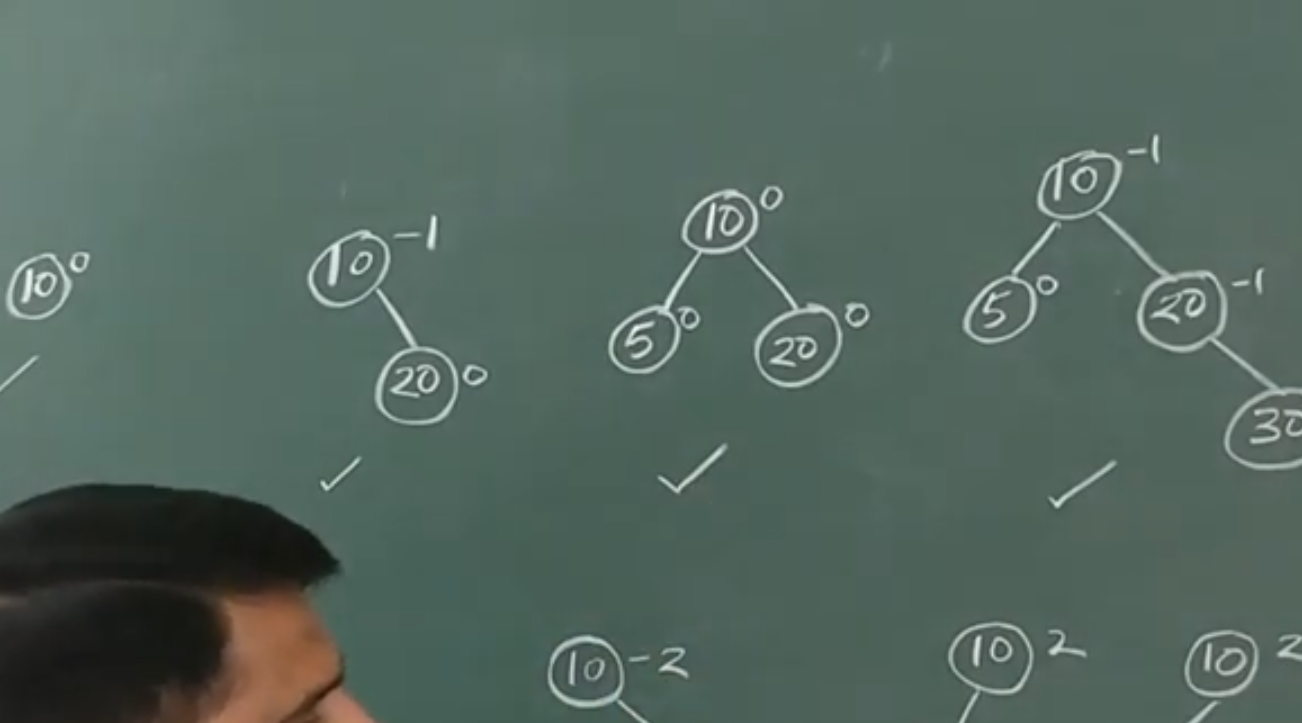 10 0
10 -1
20 0
10 0
5 0
20 0
10 -1
5 0
20 -1
30
10 -2
10 2
10 2